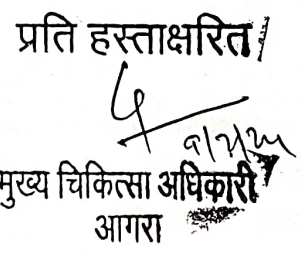 प्रति हस्ताक्षरित
मुख्य चिकित्सा अधिकारी
आगरा